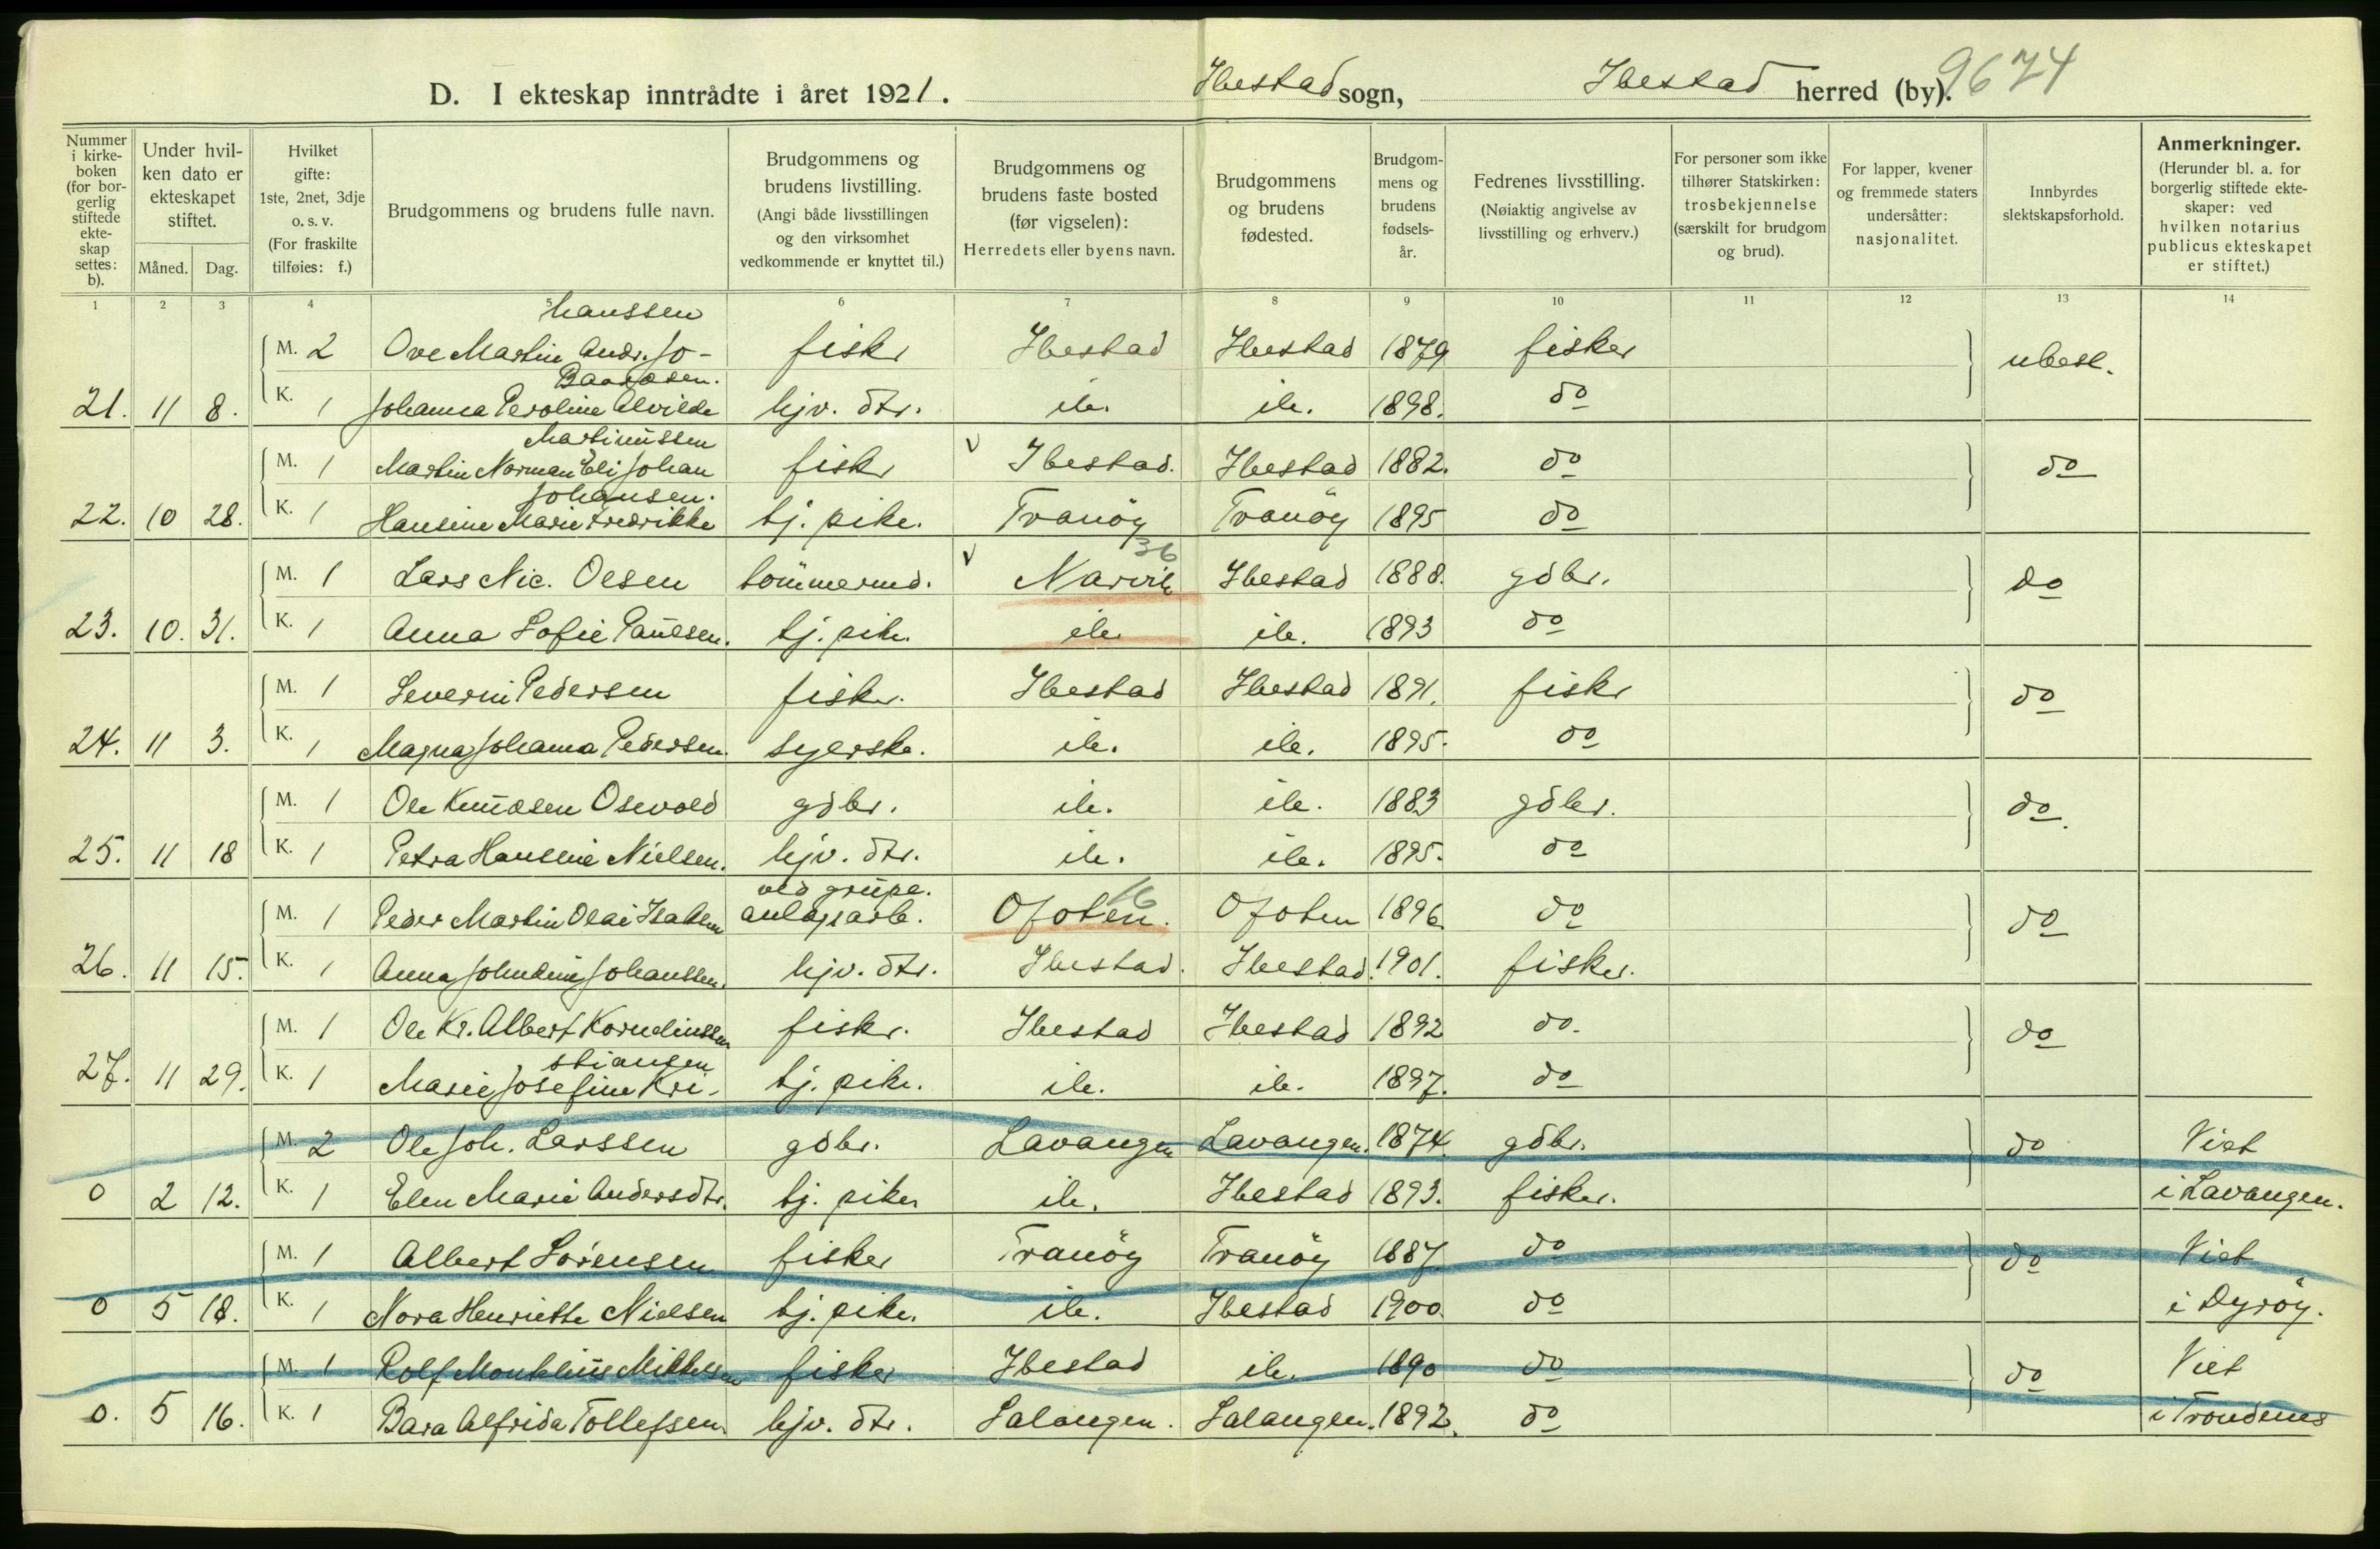 D. I ekteskap inntrådte i året 1921. Ibestad sogn, Ibestad herred (by). 9674
Nummer i kirkeboken (for borgerlig stiftede ekteskap settes: b).
Under hvilken dato er ekteskapet stiftet.
Måned. Dag.
Hvilket gifte: 1ste, 2net, 3dje o. s. v. (For fraskilte tilføies: f.)
Brudgommens og brudens fulle navn.
Brudgommens og brudens livstilling. (Angi både livsstillingen og den virksomhet vedkommende er knyttet til.)
Brudgommens og brudens faste bosted (før vigselen): Herredets eller byens navn.
Brudgommens og brudens fødested.
Brudgommens og brudens fødselsår.
Fedrenes livsstilling. (Nøiaktig angivelse av livsstilling og erhverv.)
For personer som ikke tilhører Statskirken: trosbekjennelse (særskilt for brudgom og brud).
For lapper, kvener og fremmede staters undersåtter: nasjonalitet.
Innbyrdes slektskapsforhold.
Anmerkninger. (Herunder bl. a. for borgerlig stiftede ekteskaper: ved hvilken notarius publicus ekteskapet er stiftet.)
1 2 3 4 5 6 7 8 9 10 11 12 13 14
hanssen
M. 2 Ove Martin Andr. Jo- fisker Ibestad Ibestad 1879 fisker ubesl.
21. 11 8. K. 1 Johanna Peroline Alvilde hjv. dtr. ib. ib. 1898. do
Martinussen
M. 1 Martin Norman Eli Johan fisker v Ibestad. Ibestad 1882. do do
Johansen.
22. 10 28. K. 1 Hansine Marie Fredrikke tj. pike. Tranöy Tranöy 1895 do
36
M. 1 Lars Nic. Olsen tömmermd. v Narvik Ibestad 1888. gdbr. do
23. 10. 31. K. 1 Anna Sofie Paulsen. tj. pike. ib. ib. 1893 do
M. 1 Severin Pedersen fisker. Ibestad Ibestad 1891. fisker do
24. 11 3. K. 1 Magna Johanna Pedersen. syerske. ib. ib. 1895. do
M. 1 Ole Knudsen Osvold gdbr. ib. ib. 1883 gdbr. do.
25. 11 18 K. 1 Petra Hansine Nielsen. hjv. dtr. ib. ib. 1895. do
ved grube. 16
M. 1 Peder Martin Olai Isaksen anlagsarb. Ofoten. Ofoten 1896. do do
26. 11 15. K. 1 Anna Johndine Johanssen. hjv. dtr. Ibestad. Ibestad. 1901. fisker.
M. 1 Ole Kr. Albert Korneliussen fisker. Ibestad Ibestad 1892 do. do
stiansen
27. 11 29. K. 1 Marie Josefine Kri- tj. pike. ib. ib. 1897. do
M. 2 Ole Joh. Larssen gdbr. Lavangen Lavangen. 1874. gdbr. do Viet
0 2 12. K. 1 Elen Marie Andersdtr. tj. pike ib. Ibestad 1893. fisker. i Lavangen.
M. 1 Albert Sörensen fisker Tranöy Tranöy 1887. do do Viet
0 5 18. K. 1 Nora Henriette Nielsen tj. pike. ib. Ibestad 1900. do i Dyröy.
M. 1 Rolf Mikkelsen fisker Ibestad ib. 1890 do do Viet
0. 5 16. K. 1 Bara Alfrida Tollefsen. hjv. dtr. Salangen. Salangen. 1892. do i Trondenes